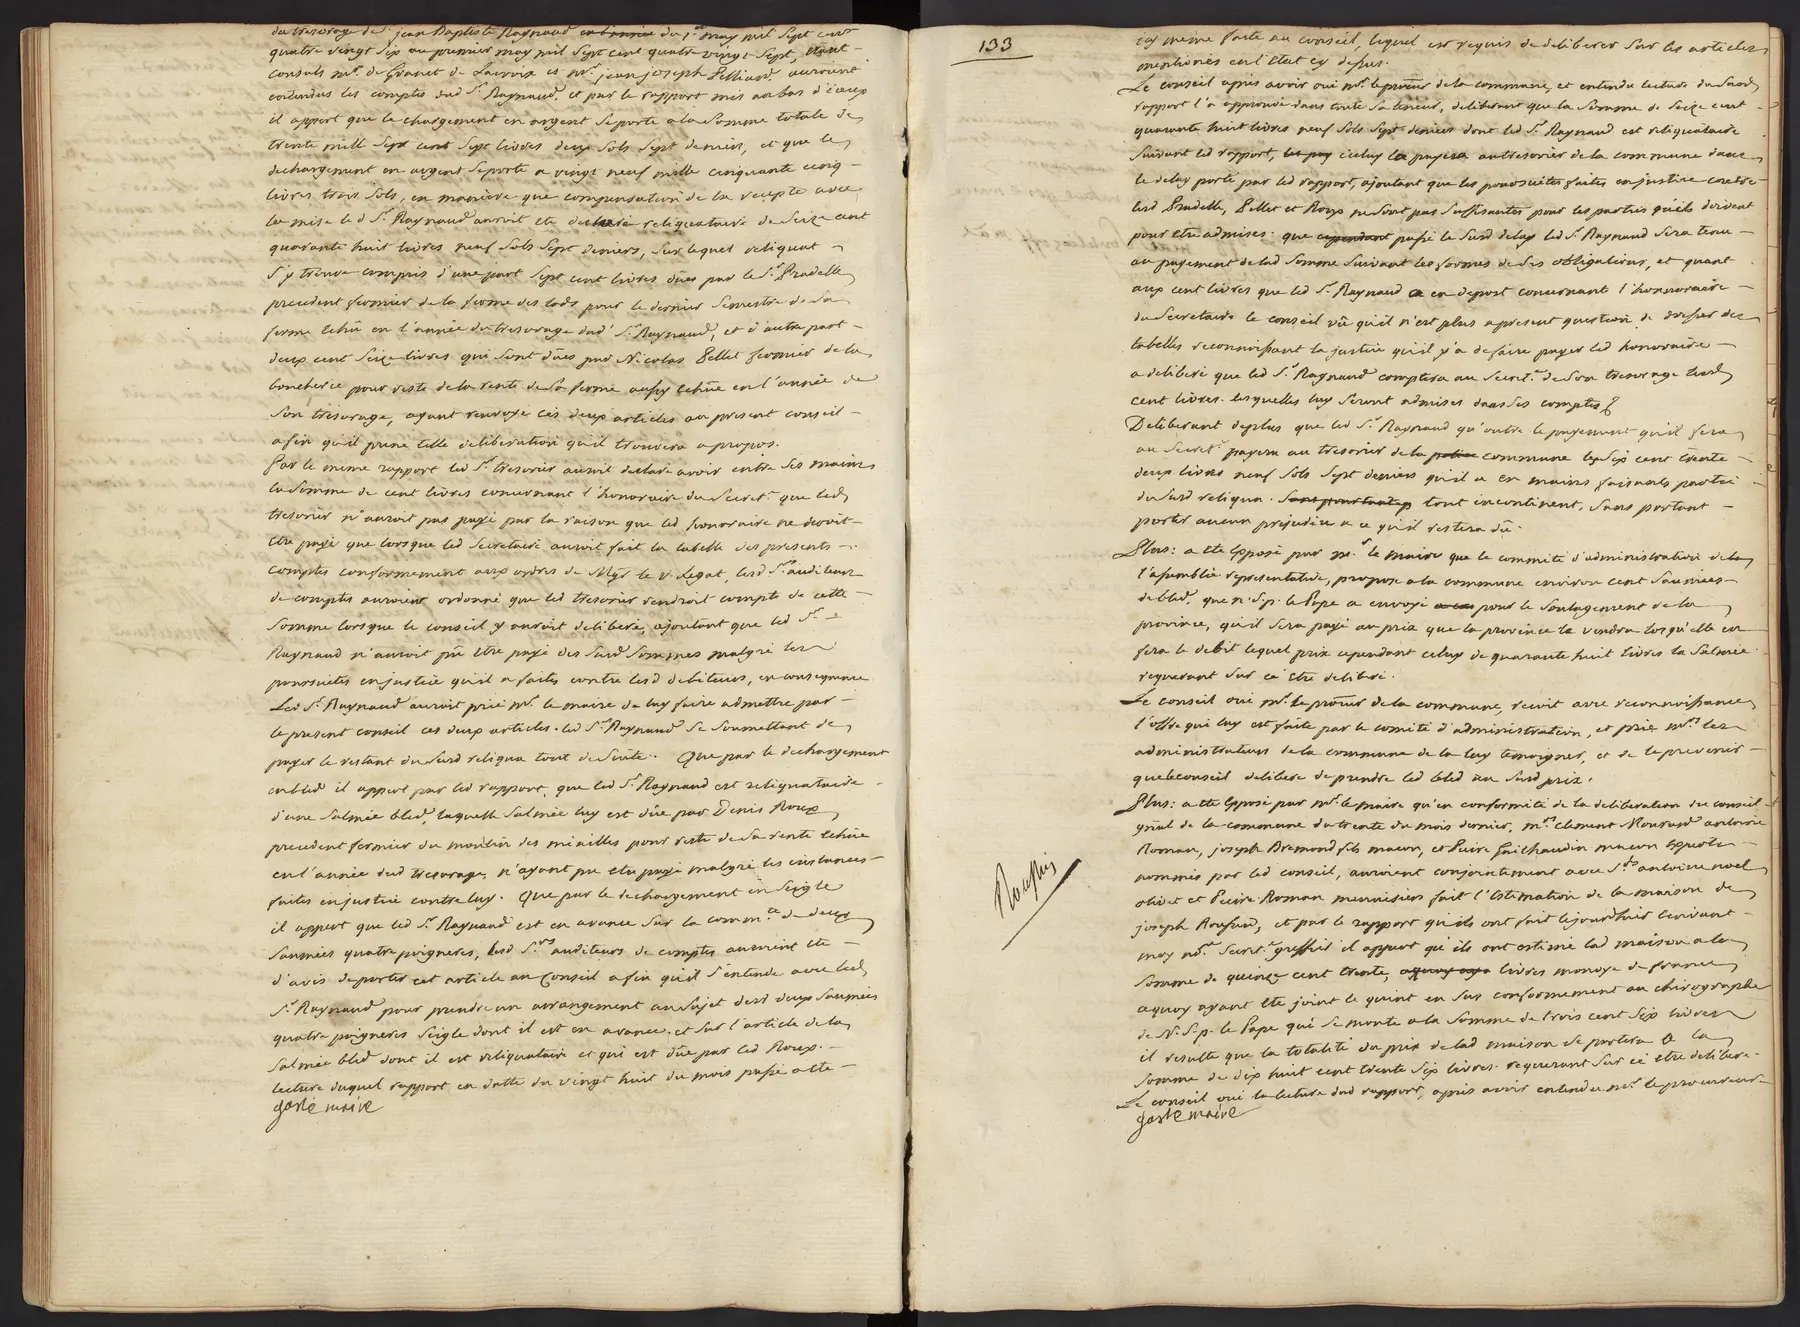 du tresorage de Sr. jean Baptiste Raynaud en l'année du pr. may mil sept cent
quatre vingt six au premier may mil sept cent quatre vingt sept, etant
consuls mr. de Granet de Lacroix et mr. jean joseph Felliard auroient
entendus les comptes dud Sr. Raynaud, et par le rapport mis au bas d'iceux
il appert que le chargement en argent se porte a la somme totale de
trente mille sept cent sept livres deux sols sept deniers, et que le
dechargement en argent se porte a vingt neuf mille cinquante cinq
livres trois sols, en maniere que compensation de la recepte avec
la mise led Sr. Raynaud auroit ete declaré reliquataire de seize cent
quarante huit livres neuf sols sept deniers, sur lequel reliquat
s'y trouve compris d'une part sept cent livres dües par le Sr. Pradelle
precedent fermier de la ferme des lods pour le dernier semestre de sa
ferme echû en l'année du tresorage dud' Sr. Raynaud, et d'autre part
deux cent seize livres qui sont dües par Nicolas Pellet fermier de la
boucherie pour reste de la rente de sa ferme aussy echüe en l'année de
son tresorage, ayant renvoyé ces deux articles au present conseil
afin qu'il prene telle deliberation qu'il trouvera a propos.
Par le meme rapport led Sr. tresorier auroit declaré avoir entre ses mains
la somme de cent livres concernant l'honoraire du secret.re que led
tresorier n'auroit pas payé par la raison que led honoraire ne devoit
etre payé que lorsque led secretaire auroit fait la tabelle des presents
comptes conformement aux ordres de Mgr le v. Legat, lesd Srs. auditeurs
de comptes auroient ordonné que led tresorier rendroit compte de cette
somme lorsque le conseil y auroit deliberé, ajoutant que led Sr.
Raynaud n'auroit pû etre payé des susd sommes malgré les
poursuites en justice qu'il a faites contre lesd debiteurs, en consequence
Led Sr. Raynaud auroit prié mr. le maire de luy faire admettre par
le present conseil ces deux articles. led Sr. Raynaud se soumettant de
payer le restant du susd reliqua tout de suite. Que par le dechargement
en bled il appert par led rapport, que led Sr. Raynaud est reliquataire
d'une salmée bled, laquelle salmée luy est düe par Denis Roux
precedent fermier du moulin des miailles pour reste de sa rente echüe
en l'année dud tresorage, n'ayant pu etre payé malgré les instances
faites en justice contre luy. Que par le dechargement en seigle
il appert que led Sr. Raynaud est en avance sur la comm.té de deux
saumées quatre poigneres, lesd Srs. auditeurs de comptes auroient ete
d'avis de porter cet article au conseil afin qu'il s'entende avec led
Sr. Raynaud pour prendre un arrangement au sujet desd deux saumées
quatre poigneres seigle dont il est en avance. et sur l'article de la
salmée bled dont il est reliquataire et qui est düe par led Roux.
lecture duquel rapport en datte du vingt huit du mois passé a ete
gasté maire
133
icy meme faite au conseil, lequel est requis de deliberer sur les articles
mentionés en l'etat cy dessus.
Le conseil apres avoir oui mr. le prour de la commune, et entendu lecture du susd
rapport l'a approuvé dans toute sa teneur, deliberant que la somme de seize cent
quarante huit livres neuf sols sept deniers dont led Sr. Raynaud est reliquataire
suivant led rapport, les pay iceluy la payera au tresorier de la commune dans
le delay porté par led rapport, ajoutant que les poursuites faites en justice contre
lesd Pradelle, Pellet et Roux ne sont pas suffisantes pour les parties qu'ils doivent
pour etre admises. que cependant passé le susd delay led Sr. Raynaud sera tenu
au payement de lad somme suivant les formes de ses obligations, et quant
aux cent livres que led Sr. Raynaud a en depost concernant l'honnoraire
du secretaire le conseil vû qu'il n'est plus a present question de dresser des
tabelles reconnoissant la justice qu'il y'a de faire payer led honoraire
a deliberé que led Sr. Raynaud comptera au secret.re de son tresorage lesd
cent livres. lesquelles luy seront admises dans ses comptes
Deliberant deplus que led Sr. Raynaud qu'outre le payement qu'il fera
au secret.re payera au tresorier de la police commune les six cent trente
deux livres neuf sols sept deniers qu'il a en mains faisants partie
du susd reliqua. sans pourtant tout incontinent, sans portant
porter aucun prejudice a ce qu'il restera dû.
Plus: a ete exposé par mr. le maire que le commité d'administration de la
l'assemblée representative, propose a la commune environ cent saumées
de bled, que n. s. p. le Pape a envoyé pour le soulagement de la
province, qu'il sera payé au prix que la province le vendra lorsqu'elle en
fera le debit lequel prix cependant celuy de quarante huit livres la salmée.
requerant sur ce etre deliberé.
Le conseil oui mr. le prour de la commune, recoit avec reconnoissance
l'offre qui luy est faite par le comité d'administration, et prie mrs. les
administrateurs de la commune de la luy temoigner, et de le prevenir
que le conseil delibere de prendre led bled au susd prix.
Plus: a ete exposé par mr. le maire qu'en conformité de la deliberation du conseil
gñal de la commune du trente du mois dernier, mrs. clement Mouraud antoine
Roman, joseph Bremond fils macon, et Peire Gailhaudin macon experts
nommés par led conseil, auroient conjointement avec Srs. antoine noel
olivet et Peire Roman menuisiers fait l'estimation de la maison de
joseph Roufard, et par le rapport qu'ils ont fait lejourdhuit ecrivant
moy nd. secret.re greffier il appert qu'ils ont estimé lad maison a la
somme de quinze cent trente, livres monoye de france
aquoy ayant ete joint le quint en sus conformement au chirographe
de N. S. p. le Pape qui se monte a la somme de trois cent six livres
il resulte que la totalité du prix de lad maison se portera a la
somme de dix huit cent trente six livres. requerant sur ce etre deliberé.
Le conseil oui la lecture dud rapport, apres avoir entendu mr. le procureur
gasté maire